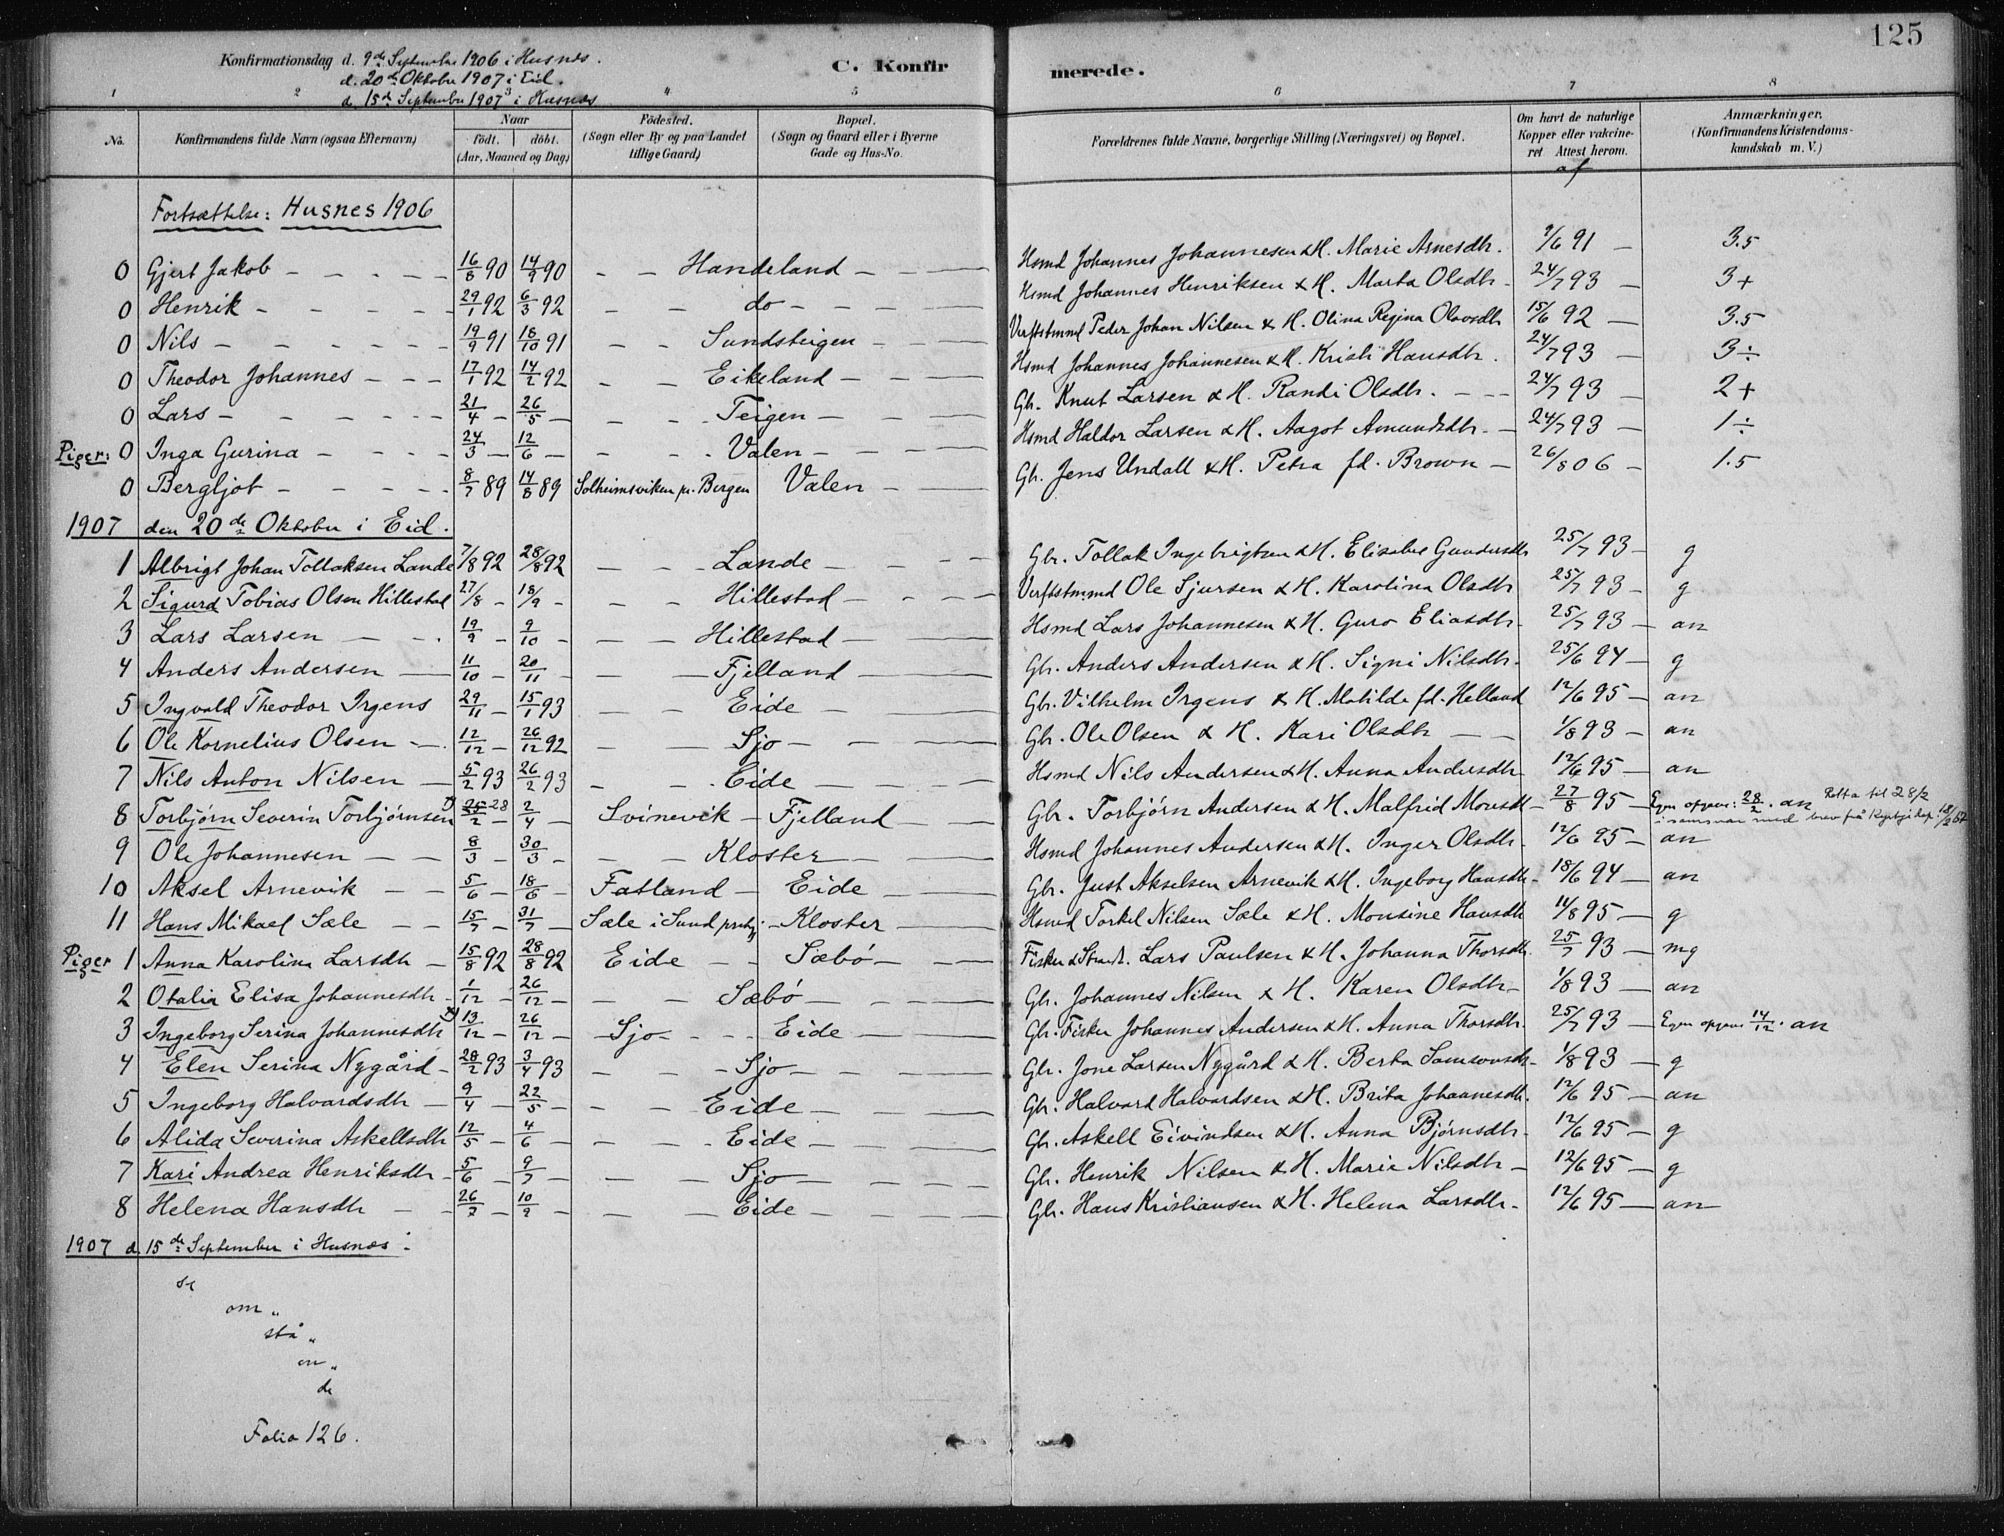 125
Konfirmationsdag d. 9de September 1906 i Husnes.
d. 20de Oktober 1907 i Eid.
d. 15de September 1907 i Husnes
C. Konfirmerede.
1 2 3 4 5 6 7 8
No. Konfirmandens fulde Navn (ogsaa Efternavn) Naar født. døbt. (Aar, Maaned og Dag) Fødested. (Sogn eller By og paa Landet tillige Gaard) Bopæl. (Sogn og Gaard eller i Byerne Gade og Hus-No. Forældrenes fulde Navne, borgerlige Stilling (Næringsvei) og Bopæl. Om havt de naturlige Kopper eller vakcineret Attest herom. af Anmærkninger. (Konfirmandens Kristendomskundskab m. V.)
Fortsættelse: Husnes 1906
0 Gjert Jakob - 16/8 90 14/9 90 - Handeland - Hsmd Johannes Johannesen & H. Marie Arnesdtr. 9/6 91 - 3.5
0 Henrik - 29/1 92 6/3 92 - do - Hsmd Johannes Henriksen & H. Marta Olsdtr - 24/7 93 - 3+
0 Nils - 19/9 91 18/10 91 - Sundsteigen - Verftstmmd Peder Johan Nilsen & H. Olina Regina Olavsdtr 15/6 92 - 3.5
0 Theodor Johannes - 17/1 92 14/2 92 - Eikeland - Hsmd Johannes Johannesen & H. Kristi Hansdtr. 24/7 93 - 3÷
0 Lars - 21/4 - 26/5 - Teigen - Gbr. Knut Larsen & H. Randi Olsdtr. - 24/7 93 - 2+
Piger: 0 Inga Gurina - 24/3 - 12/6 - Valen - Hsmd Haldor Larsen & H. Aagot Amundsdtr. - 24/7 93 - 1÷
0 Bergljot - 8/7 89 14/8 89 Solheimsviken pr. Bergen Valen - Gbr. Jens Undall & H. Petra fd. Brown - 26/8 06 - 1.5
1907 den 20de Oktober i Eid.
1 Albrigt Johan Tollaksen Lande 7/8 92 28/8 92 - Lande - Gbr. Tollak Ingebrigtsen & H. Elisabet Gundersdtr 25/7 93 - g
2 Sigurd Tobias Olsen Hillestad 27/8 - 18/9 - Hillestad - Verftstmmd Ole Sjursen & H. Karolina Olsdtr 25/7 93 - g
3 Lars Larsen - 19/9 - 9/10 - Hillestad - Hsmd Lars Johannesen & H. Guro Eliasdtr - 25/7 93 - an
4 Anders Andersen - 11/10 - 20/11 - Fjelland - Gbr. Anders Andersen & H. Signi Nilsdtr. 25/6 94 - g
5 Ingvald Theodor Irgens 29/11 - 15/1 93 - Eide - Gbr. Vilhelm Irgens & H. Matilde fd. Helland 12/6 95 - an
6 Ole Kornelius Olsen - 12/12 - 26/12 92 - Sjo - Gbr. Ole Olsen & H. Kari Olsdtr - 1/8 93 - an
7 Nils Anton Nilsen - 5/2 93 26/2 93 - Eide - Hsmd Nils Andersen & H. Anna Andersdtr - 12/6 95 - an
8 Torbjørn Severin Torbjørnsen 25 28/2 - 2/4 - Svinevik - Fjelland - Gbr. Torbjørn Andersen & H. Malfrid Monsdtr - 27/8 95 - Egen opgave: 28/2. an Retta til 28/2
i samsvar med brev frå Kyrkjedep. 18/2
9 Ole Johannesen - 8/3 - 30/3 - Kloster - Hsmd Johannes Andersen & H. Inger Olsdtr. 12/6 95 - an
10 Aksel Arnevik - 5/6 - 18/6 - Fatland - Eide - Gbr. Just Akselsen Arnevik & H. Ingeborg Hansdtr - 18/6 94 - an
11 Hans Mikael Sæle - 15/7 - 31/7 - Sæle i Sund prstgj. - Kloster - Hsmd Torkel Nilsen Sæle & H. Monsine Hansdtr 14/8 95 - g
Piger 1 Anna Karolina Larsdtr - 15/8 92 28/8 92 Eide - Sæbø - Fisker & Strands. Lars Paulsen & H. Johanna Thorsdtr. 25/7 93 - mg
2 Otalia Elisa Johannesdtr - 1/12 - 26/12 - Sæbø - Gbr. Johannes Nilsen & H. Karen Olsdtr - 1/8 93 - an
3 Ingeborg Serina Johannesdtr 13/12 - 26/12 - Sjo - Eide - Gbr. Fisker Johannes Andersen & H. Anna Thorsdtr. 25/7 93 - Egen opgave 14/12. an
4 Elen Serina Nygård - 28/2 93 3/4 93 - Sjo - Gbr. Jone Larsen Nygård & H. Berta Samsonsdtr - 1/8 93 - g
5 Ingeborg Halvardsdtr - 9/4 - 22/5 - Eide - Gbr. Halvard Halvardsen & H. Brita Johannesdtr. 12/6 95 - an
6 Alida Severina Askellsdtr 12/5 - 4/6 - Eide - Gbr. Askell Eivindsen & H. Anna Bjørnsdtr - 12/6 95 - g
7 Kari Andrea Henriksdtr - 5/6 - 9/7 - Sjo - Gbr. Henrik Nilsen & H. Marie Nilsdtr - 12/6 95 - g
8 Helena Hansdtr - 26/7 - 10/9 - Eide - Gbr. Hans Kristiansen & H. Helena Larsdtr. 12/6 95 - an
1907 d. 15de September i Husnes:
se
om "
stå "
en "
de
Folio 126.